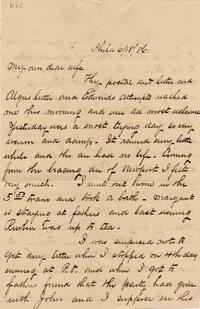 Phila 6/8/06.
My own dear wife
Thy postal and letter and
Algie letter and Edwards attempts reached
me this morning and were all most welcome
Yesterday was a most trying day so very
warm and damp. It rained very little
while and the air had no life. Coming
from the bracing air of Newport I felt it
very much. I went out home in the
5 train and took a bath. Margaret
is staying at fathers and last evening
Reuben was up to tea.
I was surprised not to
get any letter when I stopped on 4th day
evening at P.O. and when I got to
fathers found that the party have gone
with John and I suppose in this